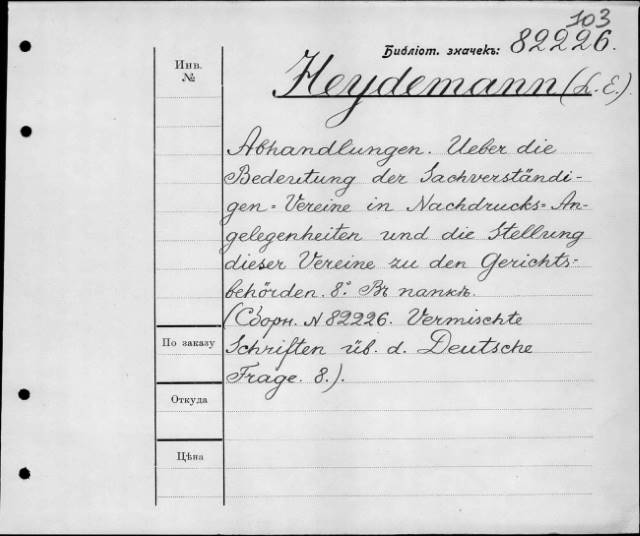 103
Библіот. значекъ: 82226.
Инв. №
Heydemann (L. E.).
Abhandlungen. Ueber die
Bedeutung der Sachverständi-
gen-Vereine in Nachdrucks-An-
gelegenheiten und die Stellung
dieser Vereine zu den Gerichts-
behörden. 8º. Въ папкѣ.
(Сборн. N 82226. Vermischte
По заказу
Schriften üb. d. Deutsche
Frage. 8.).
Откуда
Цѣна